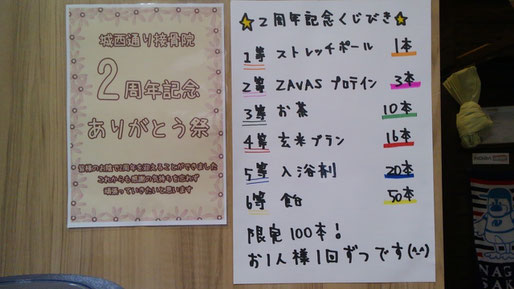 城西通り接骨院
2周年記念
ありがとう祭
皆様のお陰で2周年を迎えることができました
これからも感謝の気持ちを忘れず
頑張っていきたいと思います
2周年記念くじびき
1等 ストレッチポール 1本
2等 ZAVAS プロテイン 3本
3等 お茶 10本
4等 玄米ブラン 16本
5等 入浴剤 20本
6等 飴 50本
限定100本!
お1人様1回ずつです(^-^)
NAG
SAK